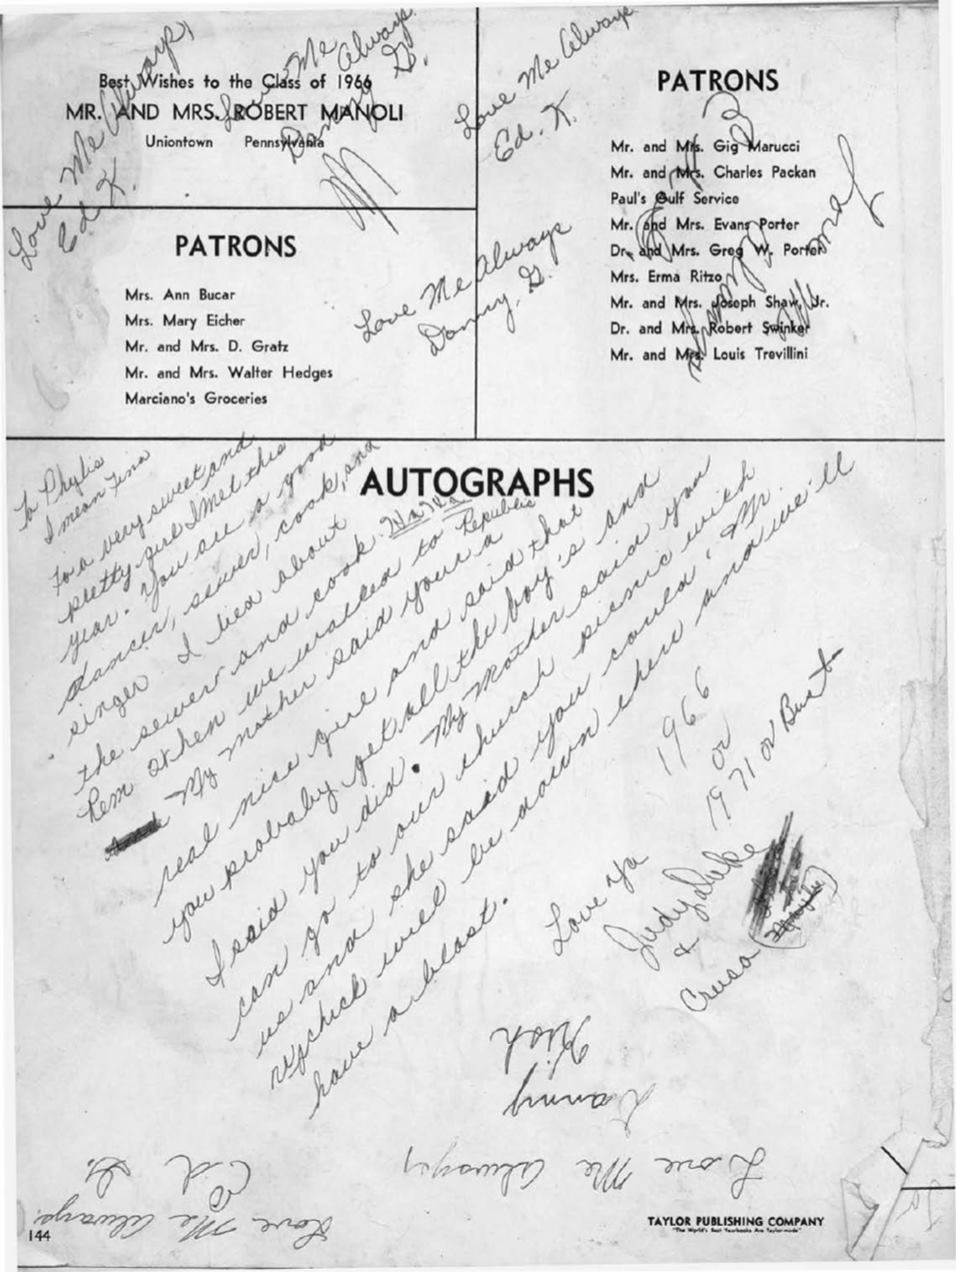 Best Wishes to the Class of 1966
MR. AND MRS. ROBERT MANOLI
Uniontown Pennsylvania
Love Me Always,
Ed. K.
Love Me Always
Danny G.
PATRONS
Mrs. Ann Bucar
Mrs. Mary Eicher
Mr. and Mrs. D. Gratz
Mr. and Mrs. Walter Hedges
Marciano's Groceries
Love Me Always
Ed. K.
Love Me Always
Danny, G.
PATRONS
Mr. and Mrs. Gig Marucci
Mr. and Mrs. Charles Packan
Paul's Gulf Service
Mr. and Mrs. Evans Porter
Dr. and Mrs. Greg W. Porter
Mrs. Erma Ritzo
Mr. and Mrs. Joseph Shaw, Jr.
Dr. and Mrs. Robert Swinker
Mr. and Mrs. Louis Trevillini
AUTOGRAPHS
To Phylis
I mean Tina
To a very sweet and
pretty girl I Met this
year. You are a good
dancer, sewer, cook, and
singer. I lied about
the sewer and cook. Ha Ha
Rem when we walked to Republic
My Mother said your a
real nice girl and said that
you probaby get all the boy's and
I said you did. My Mother said you
can go to our church picnic with
us and she said you could. Mr.
Repchick will be down there and we'll
have a blast.
Love Ya
Judy Duke
&
Crusa
1966
or
1971 or Bust
Danny
Love Me Always,
Love Me Always.
Ed G.
144
TAYLOR PUBLISHING COMPANY
"The World's Best Yearbooks Are Taylor-made"